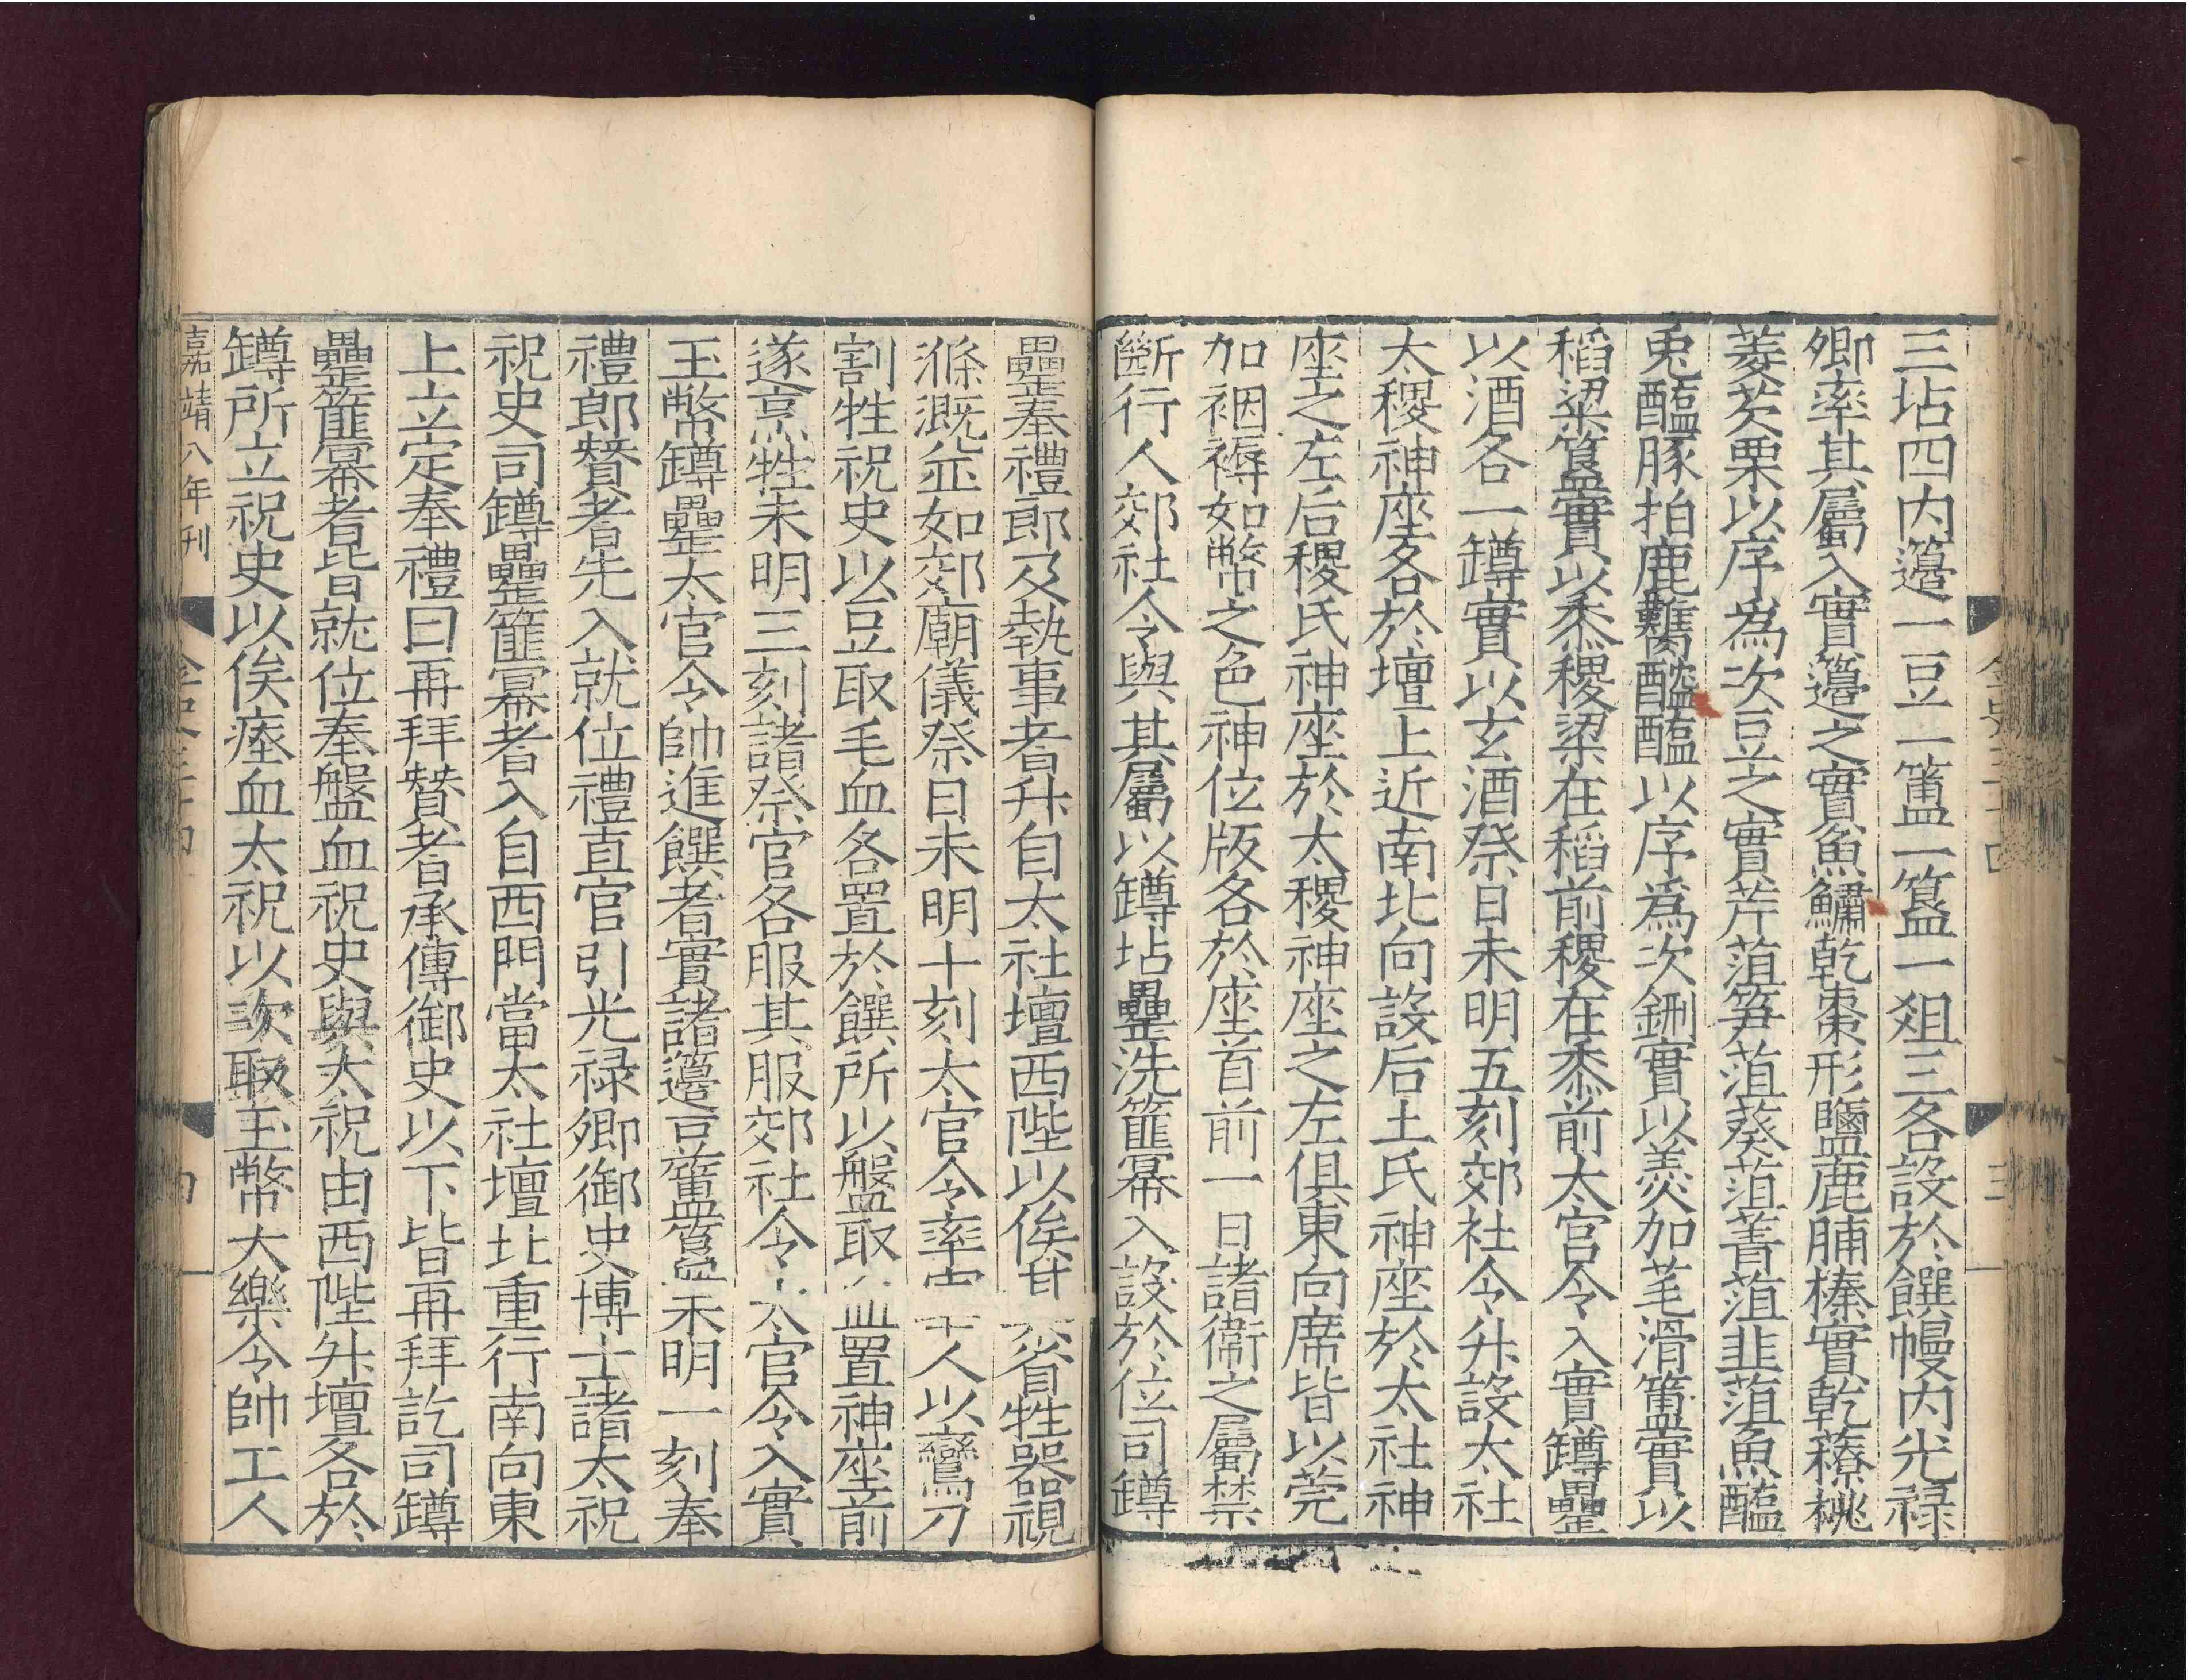 三坫四内籩一豆一簠一簋一俎三各設於饌幔内光禄
卿率其屬入實籩之實魚鱐乾棗形鹽鹿脯榛實乾䕩桃
菱芡栗以序為次豆之實芹菹笋菹葵菹菁菹韭菹魚醢
兎醢豚拍鹿臡醓醢以序爲次鉶實以羮加芼滑簠實以
稻粱簋實以黍稷粱在稻前稷在黍前太官令入實罇罍
以酒各一罇實以玄酒祭日未明五刻郊社令升設太社
太稷神座各於壇上近南北向設后土氏神座於太社神
座之左后稷氏神座於太稷神座之左俱東向席皆以莞
加裀褥如幣之色神位版各於座首前一日諸衛之屬禁
斷行人郊社令與其屬以罇坫罍洗篚羃入設於位司罇
罍奉禮郎及執事者升自太社壇西陛以俟省牲器視
滌溉並如郊廟儀祭日未明十刻太官令率宰人以鸞刀
割牲祝史以豆取毛血各置於饌所以盤取血置神座前
遂烹牲未明三刻諸祭官各服其服郊社令太官令入實
玉幣罇罍太官令帥進饌者實諸籩豆簠簋未明一刻奉
禮郎贊者先入就位禮直官引光禄卿御史博士諸太祝
祝史司罇罍篚羃者入自西門當太社壇北重行南向東
上立定奉禮曰再拜贊者承傳御史以下皆再拜訖司罇
罍篚羃者皆就位奉盤血祝史與太祝由西陛升壇各於
罇所立祝史以俟瘞血太祝以次取玉幣大樂令帥工人
嘉靖八年刊